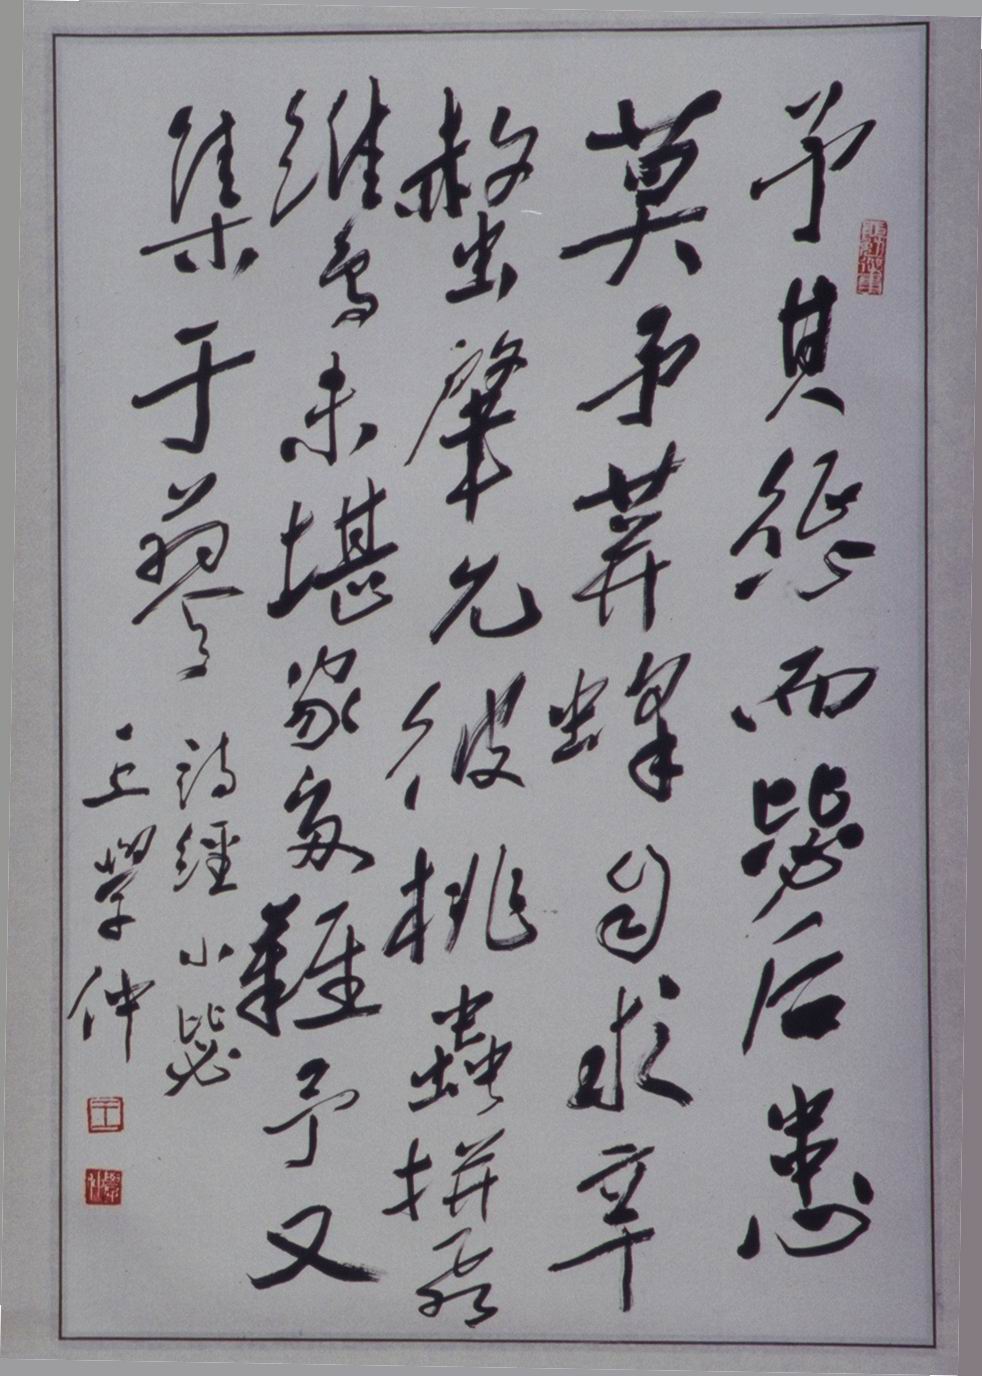 予其惩而毖后患
莫予荓蜂自求辛
螫肇允彼桃蟲拚飛
維鳥未堪家多難予又
集于蓼 詩經小毖
王學仲
王
學仲